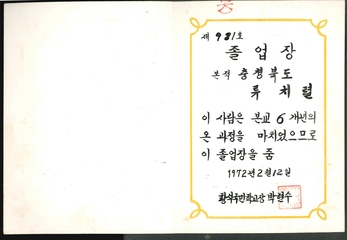 제 931호
졸업장
본적 충청북도
류치렬
이 사람은 본교 6 개년의
온 과정을 마치었으므로
이 졸업장을 줌
1972년 2월 12일
국민학교장